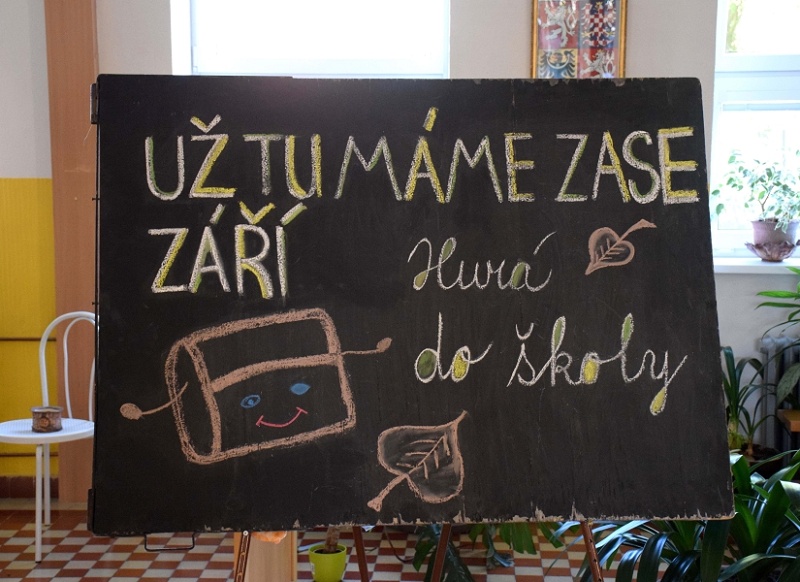 UŽ TU MÁME ZASE
ZÁŘÍ
Hurá
do školy